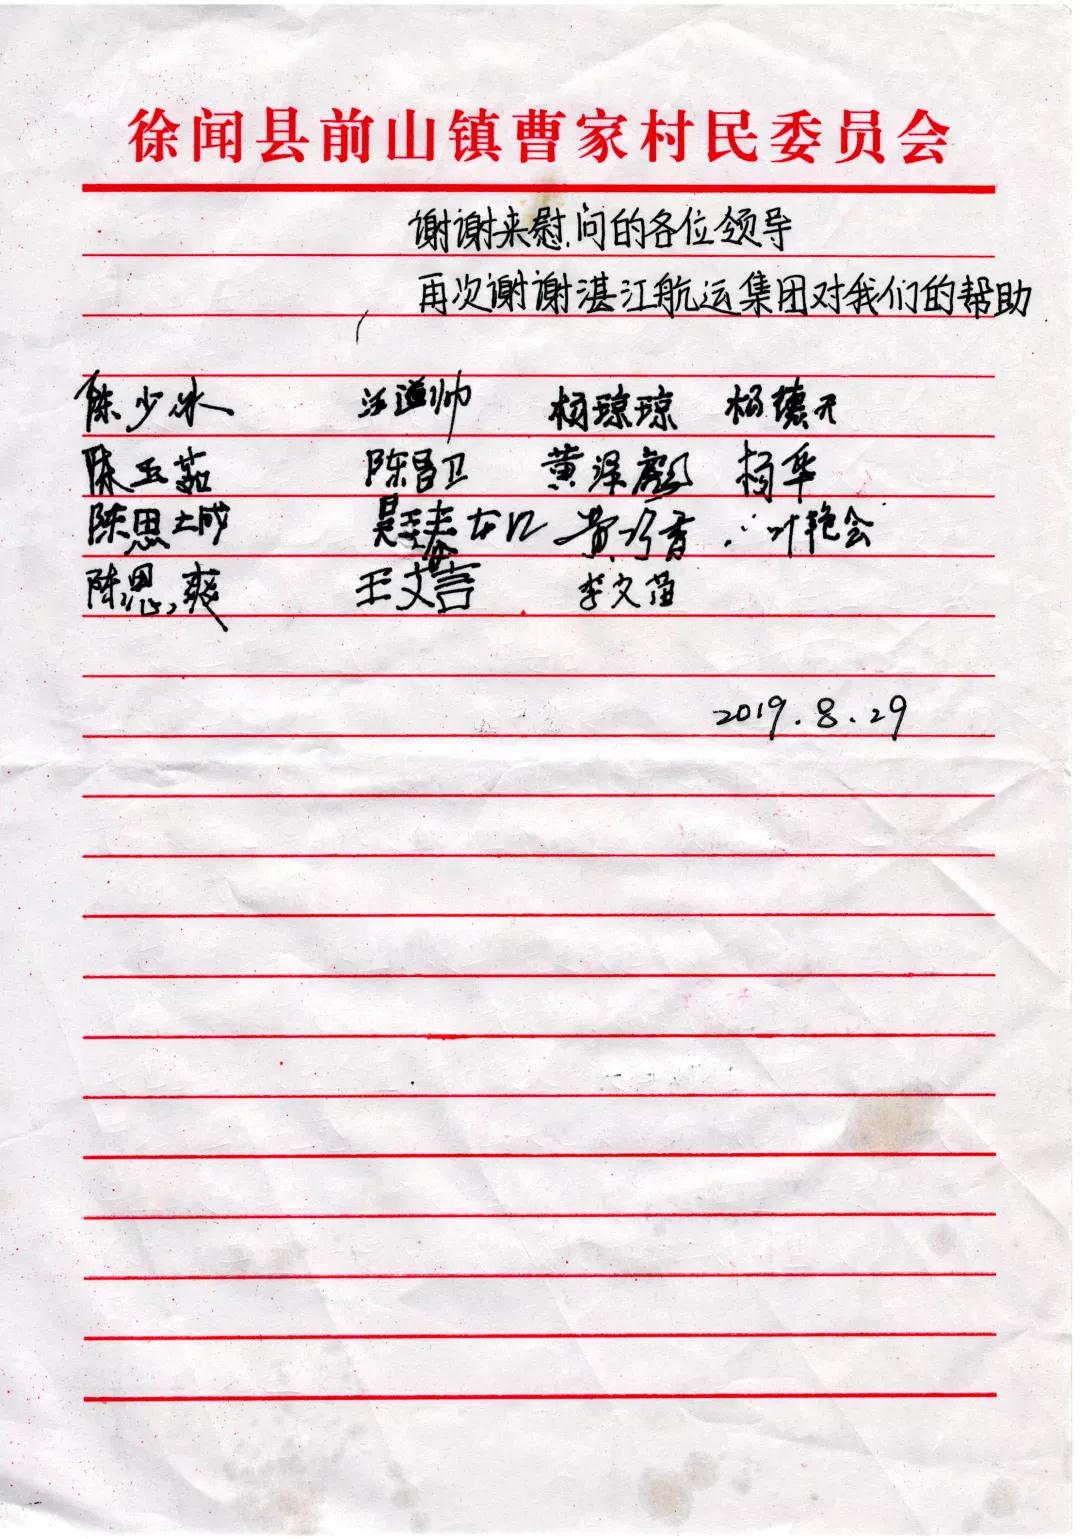 徐闻县前山镇曹家村民委员会
谢谢来慰问的各位领导
再次谢谢湛江航运集团对我们的帮助
陈少冰 汪道帅 杨琼琼 杨德
陈玉茹 陈昌卫 黄泽彪 杨华
陈思 黄巧香 叶艳会
陈思爽 王文言 李文苗
2019.8.29